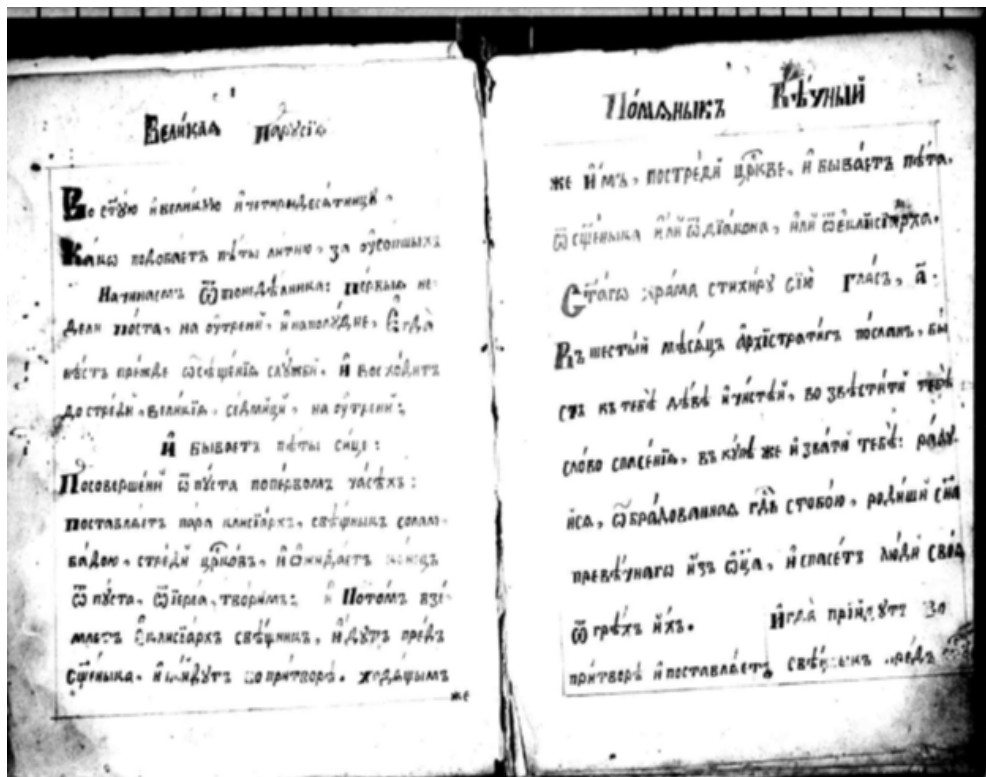 Вели́каѧ паруси́а
Во ст҃ꙋю и҆ вели́кꙋю и҆ четиридесѧ́тницꙋ.
Ка́кѡ подоба́етъ пѣ́ты литию, за ᲂу҆со́пшыхъ
Начинаемъ ѿ понедѣ́лника: пе́рвыѧ не-
дели по́ста, на ᲂу҆́трени, и҆ на полꙋ́дне, Е҆гда̀
нѣ́стъ пре́жде ѡ҆сщ҃е́нїа слꙋ́жби. И҆ восхо́дитъ
до стрѣди̑, вели́кїѧ, седми́ци, на ᲂу҆́трени:
И҆ быва́етъ пѣ́ты си́це:
По соверше́нїи ѿпꙋ́ста по пе́рвомъ ча́сѣхъ:
поставлѧ́етъ пара клисїа́рхъ, свѣ́щныкъ со лам-
ба́дою, стреди̑ цр҃ковъ, и҆ ѡ҆жида́етъ ко́нецъ
ѿпꙋ́ста, ѿ і҆ере́а, твори́мъ: и҆ Пото́мъ взе́-
млетъ Е҆клисїа́рхъ свѣ́щникъ, и҆́дꙋтъ пре́дъ
сщ҃е́ныка. и҆ и҆зы́йдꙋтъ во при́творѣ. ходѧ́щымъ
же
По́мѧныкъ Вѣ́чный
же и҆̀мъ, постреди̑ цр҃кве, и҆ быва́етъ пѣ́та.
ѿ сщ҃е́ныка и҆лѝ ѿ дїа́кона, и҆лѝ ѿ е҆клисїа́рха.
Ст҃а́гѡ хра́ма стихи́рꙋ сїю̀ гла́съ, а҃:
Въ шесты́й мѣ́сѧцъ а҆рхїстрати́гъ по́сланъ, бы́
стъ къ тебѣ̀ дѣ́вѣ и҆ чи́стѣй, во звѣсти́ти тебѣ̀
сло́во спасе́нїа, въ кꙋ́пѣ же и҆ зва́ти тебѣ̀: ра́дꙋ-
йсѧ, ѡ҆бра́дованнаѧ гд҇ь с тобо́ю, роди́ши сн҃а
превѣ́чнагѡ и҆́зъ ѻ҆ц҃а, и҆ спасе́тъ лю́ди своѧ̀
ѿ грѣ́хъ и҆́хъ. И҆гда̀ прїи́дꙋтъ во
при́творѣ и҆ поставлѧ́етъ свѣ́щныкъ пред̾